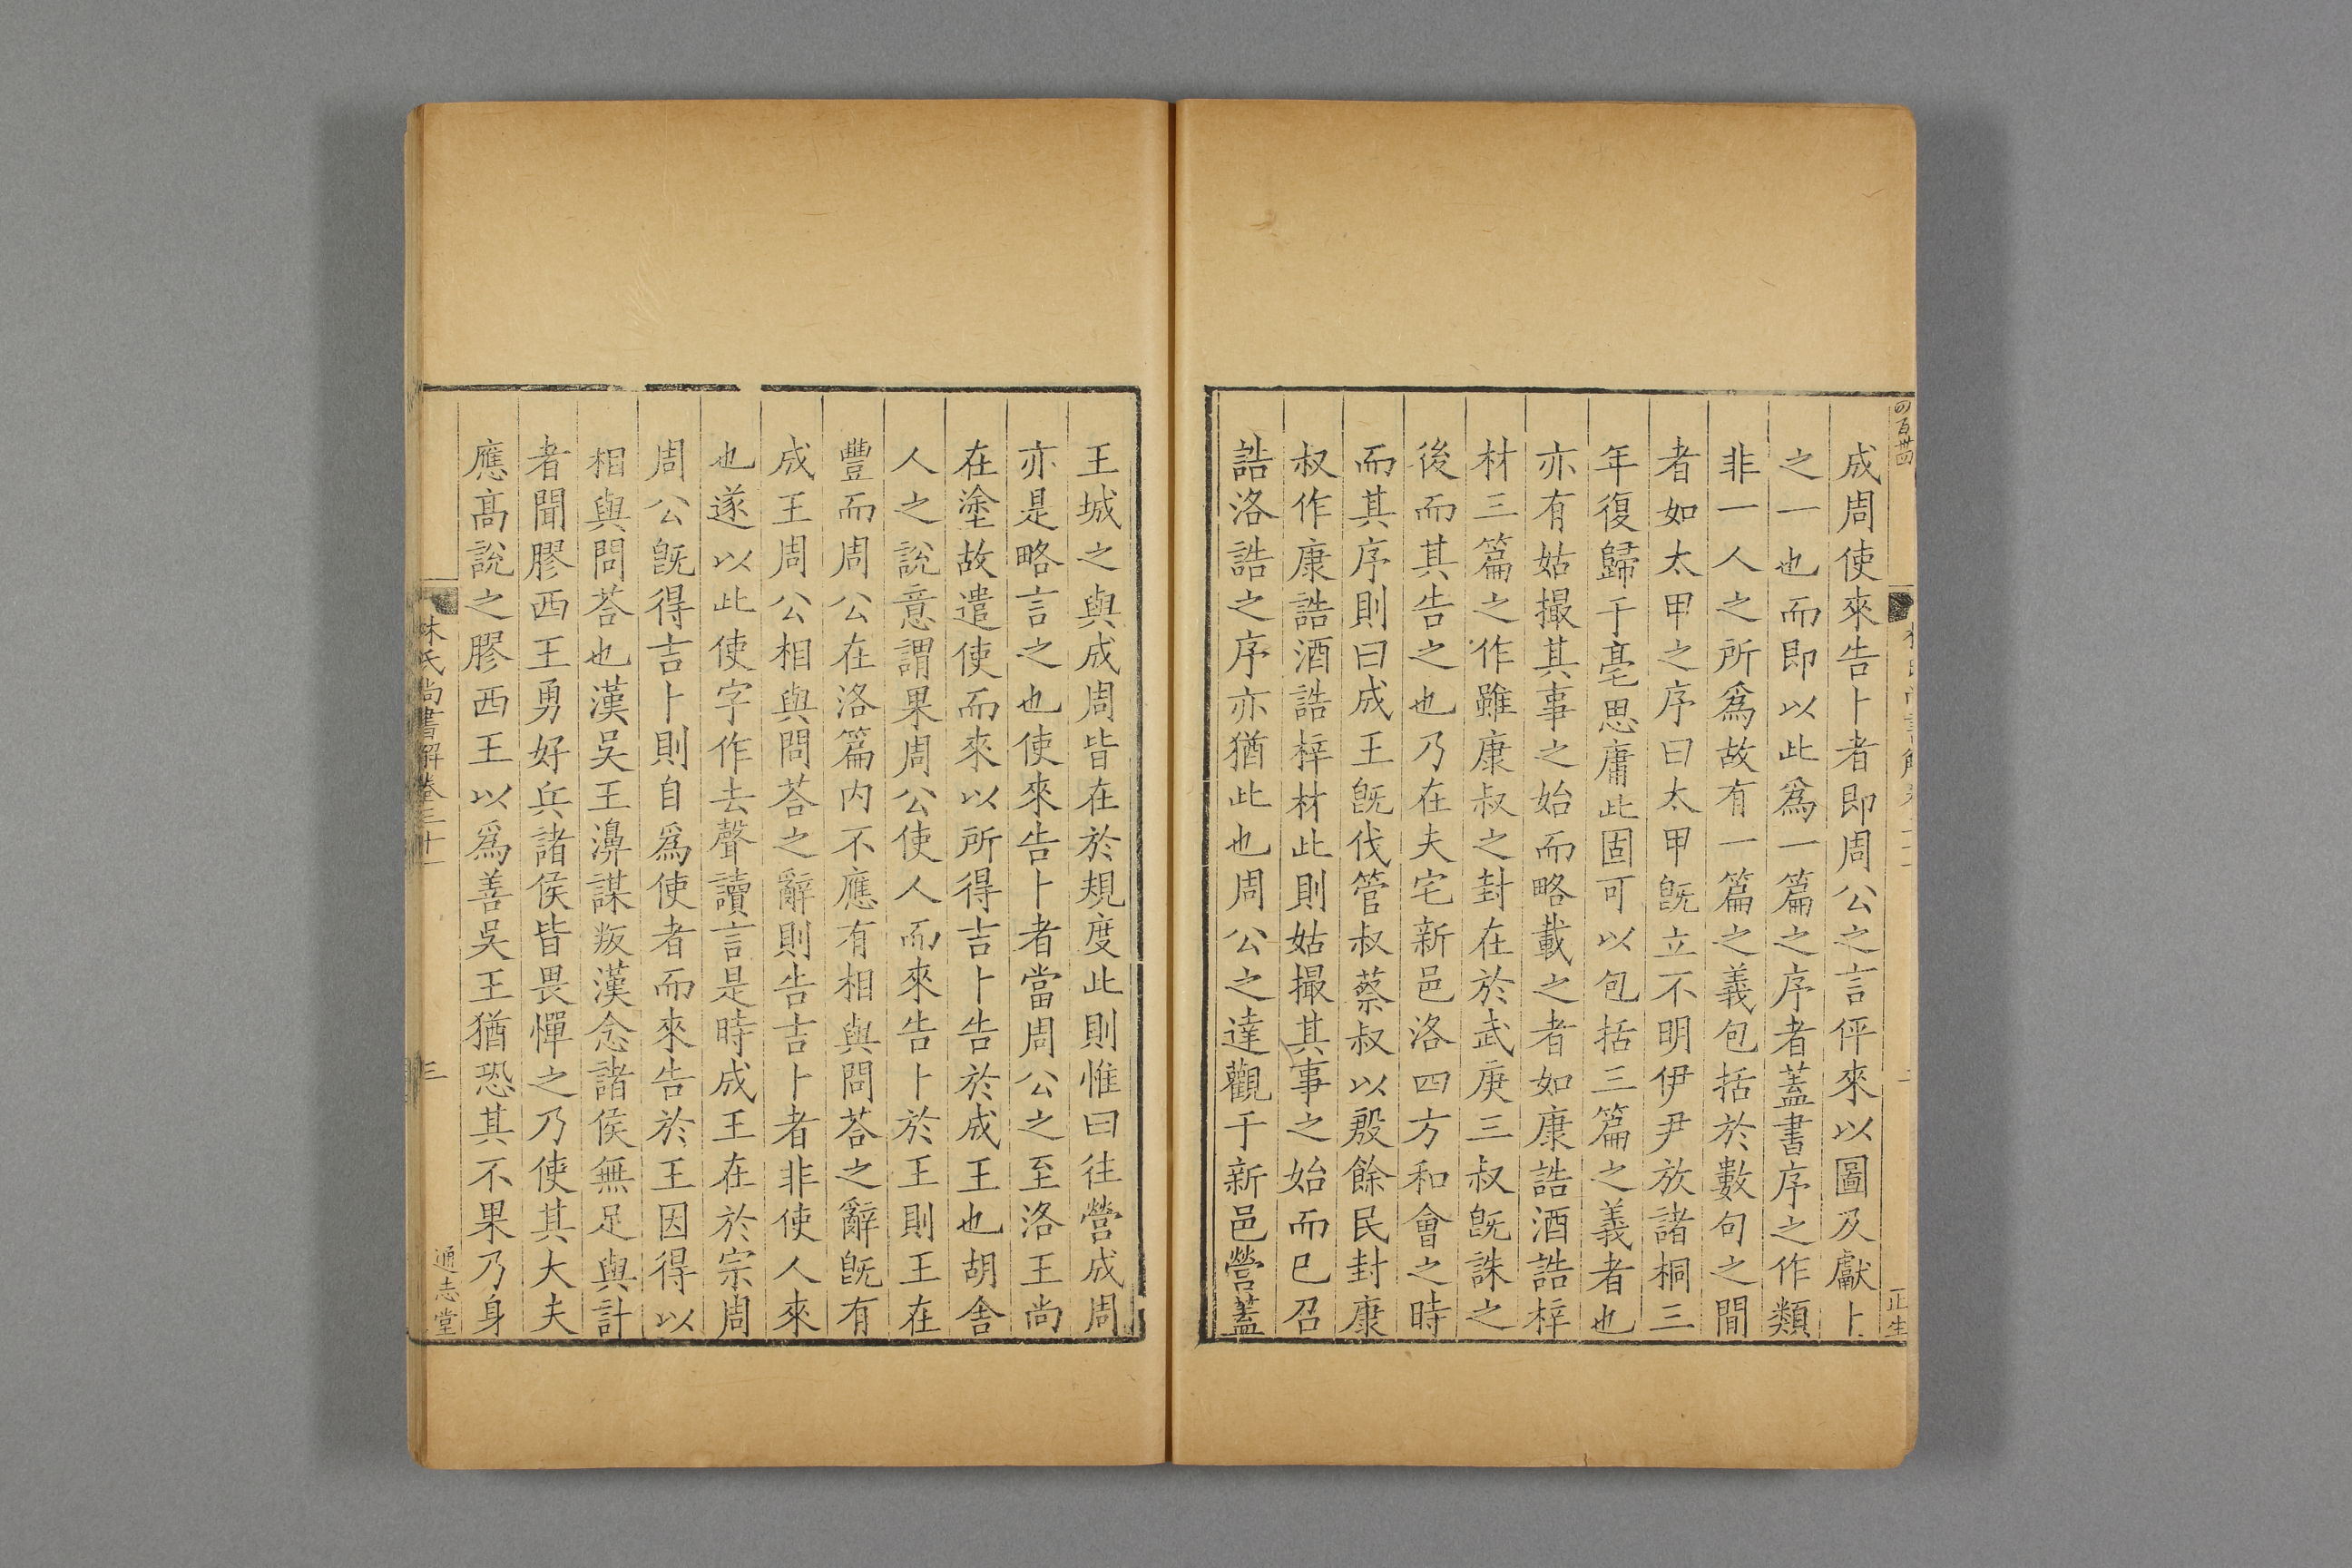 四百卅四
正生
成周使來告卜者即周公之言伻來以圖及獻卜
之一也而即以此爲一篇之序者蓋書序之作類
非一人之所爲故有一篇之義包括於數句之間
者如太甲之序曰太甲旣立不明伊尹放諸桐三
年復歸于亳思庸此固可以包括三篇之義者也
亦有姑撮其事之始而略載之者如康誥酒誥梓
材三篇之作雖康叔之封在於武庚三叔旣誅之
後而其告之也乃在夫宅新邑洛四方和會之時
而其序則曰成王旣伐管叔蔡叔以殷餘民封康
叔作康誥酒誥梓材此則姑撮其事之始而已召
誥洛誥之序亦猶此也周公之達觀于新邑營蓋
王城之與成周皆在於規度此則惟曰往營成周
亦是略言之也使來告卜者當周公之至洛王尚
在塗故遣使而來以所得吉卜告於成王也胡舍
人之說意謂果周公使人而來告卜於王則王在
豐而周公在洛篇内不應有相與問荅之辭旣有
成王周公相與問荅之辭則告吉卜者非使人來
也遂以此使字作去聲讀言是時成王在於宗周
周公旣得吉卜則自爲使者而來告於王因得以
相與問荅也漢吳王濞謀叛漢念諸侯無足與計
者聞膠西王勇好兵諸侯皆畏憚之乃使其大夫
應高說之膠西王以爲善吳王猶恐其不果乃身
林氏尚書解卷三十一
三
通志堂